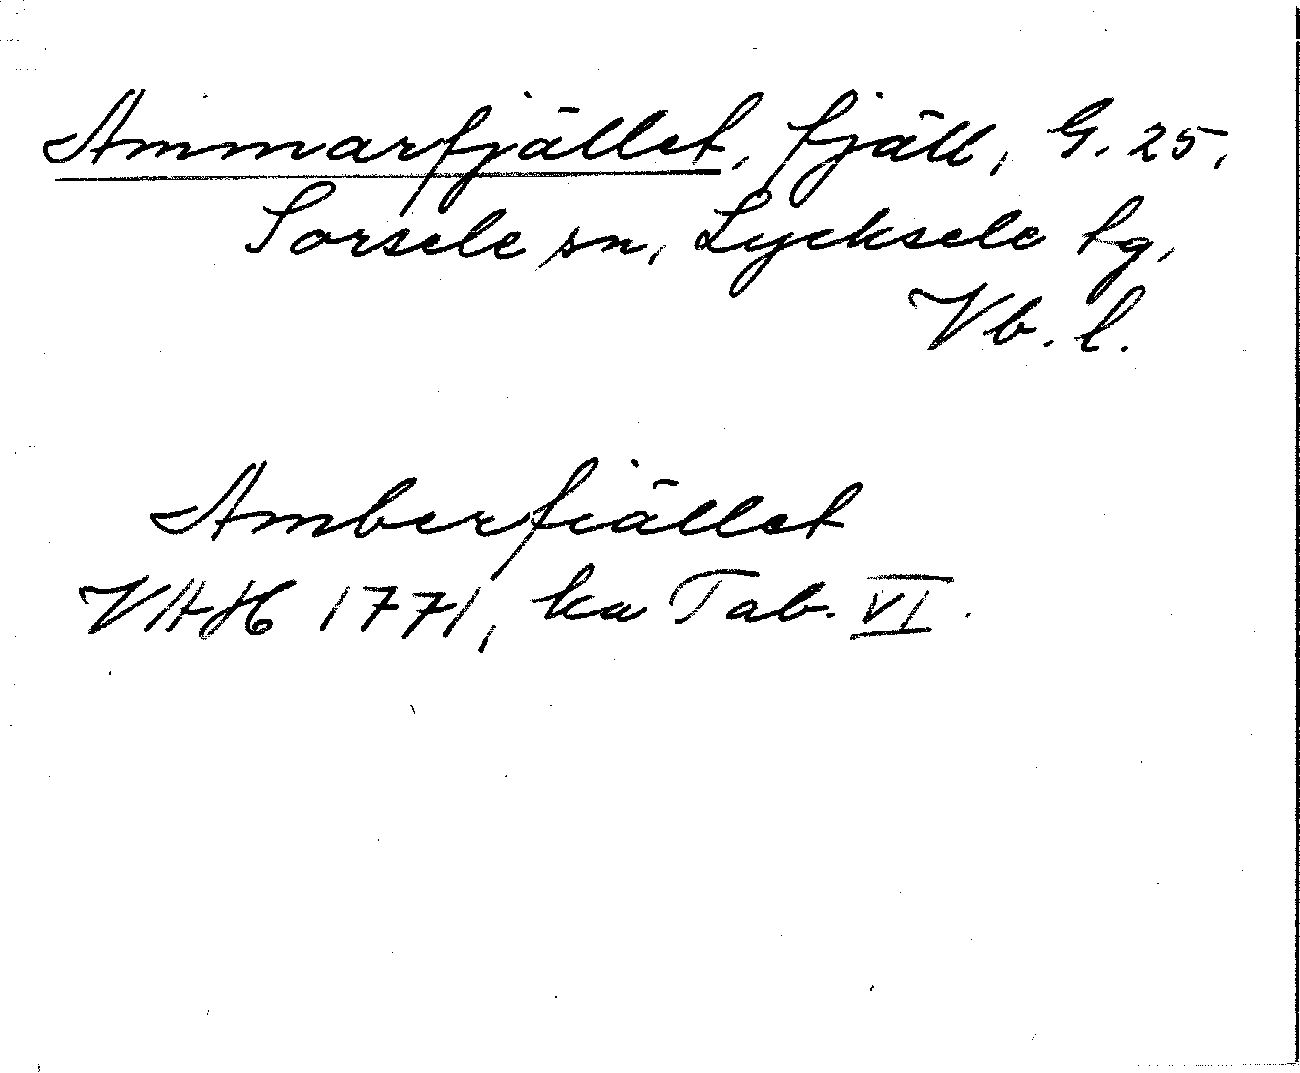 Ammarfjället, fjäll, G. 25,
Sorsele sn, Lycksele lg,
Vb. l.
Amberfiället
VAH 1771, ka Tab. VI.